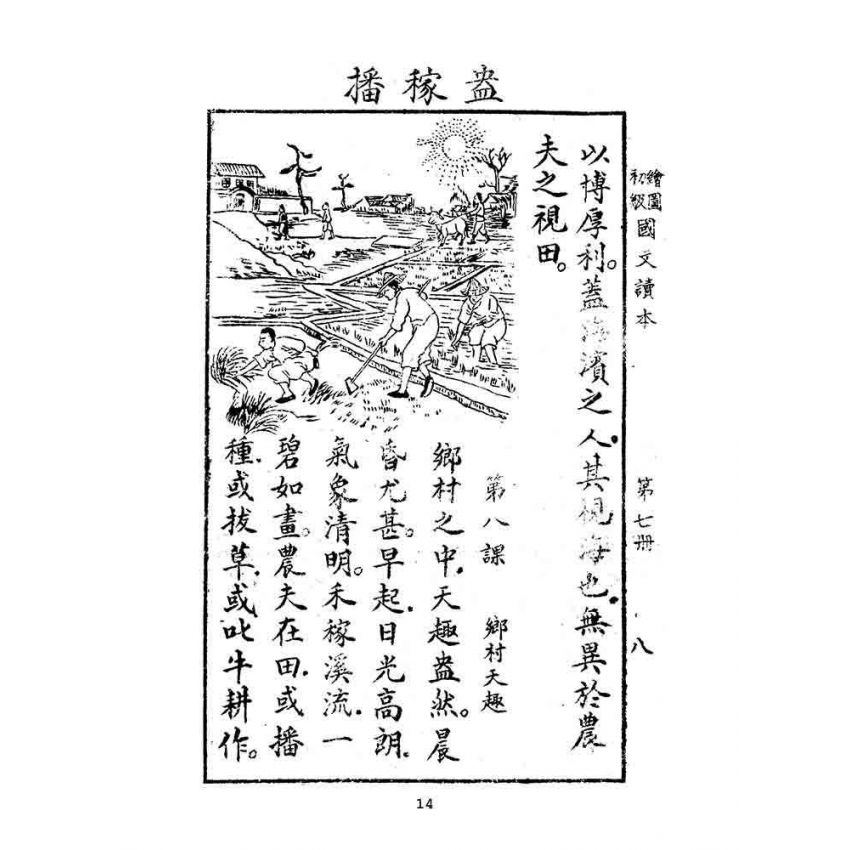 盎稼播
繪圖初級國文讀本 第七册 八
以博厚利。蓋海濱之人．其視海也．無異於農
夫之視田。
第八課 鄉村天趣
鄉村之中．天趣盎然。晨
昏尤甚。早起．日光高朗．
氣象清明。禾稼溪流．一
碧如畫。農夫在田．或播
種．或拔草．或叱牛耕作。
14